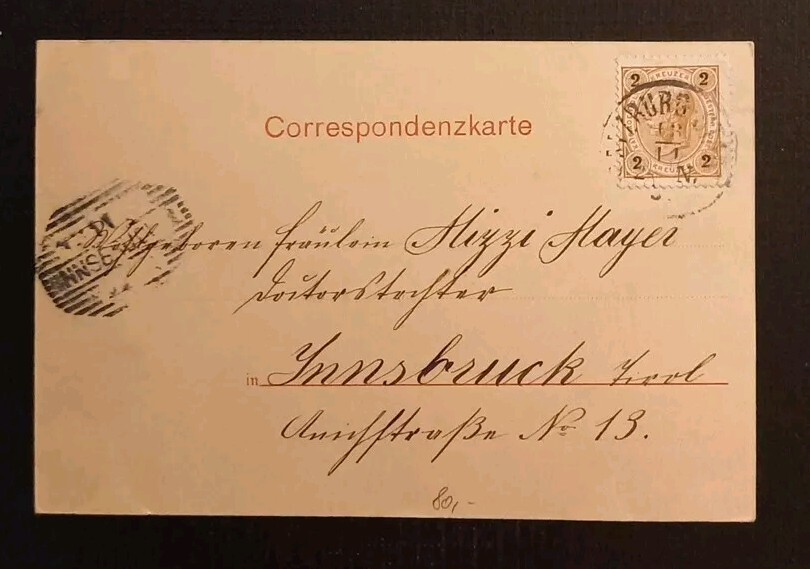 Correspondenzkarte
2 KREUZER 2
2 KREUZER 2
Wohlgeboren Fräulein Mizzi Mayer
Doctorstochter
in Innsbruck Tirol
Anichstraße No 13.
80,-